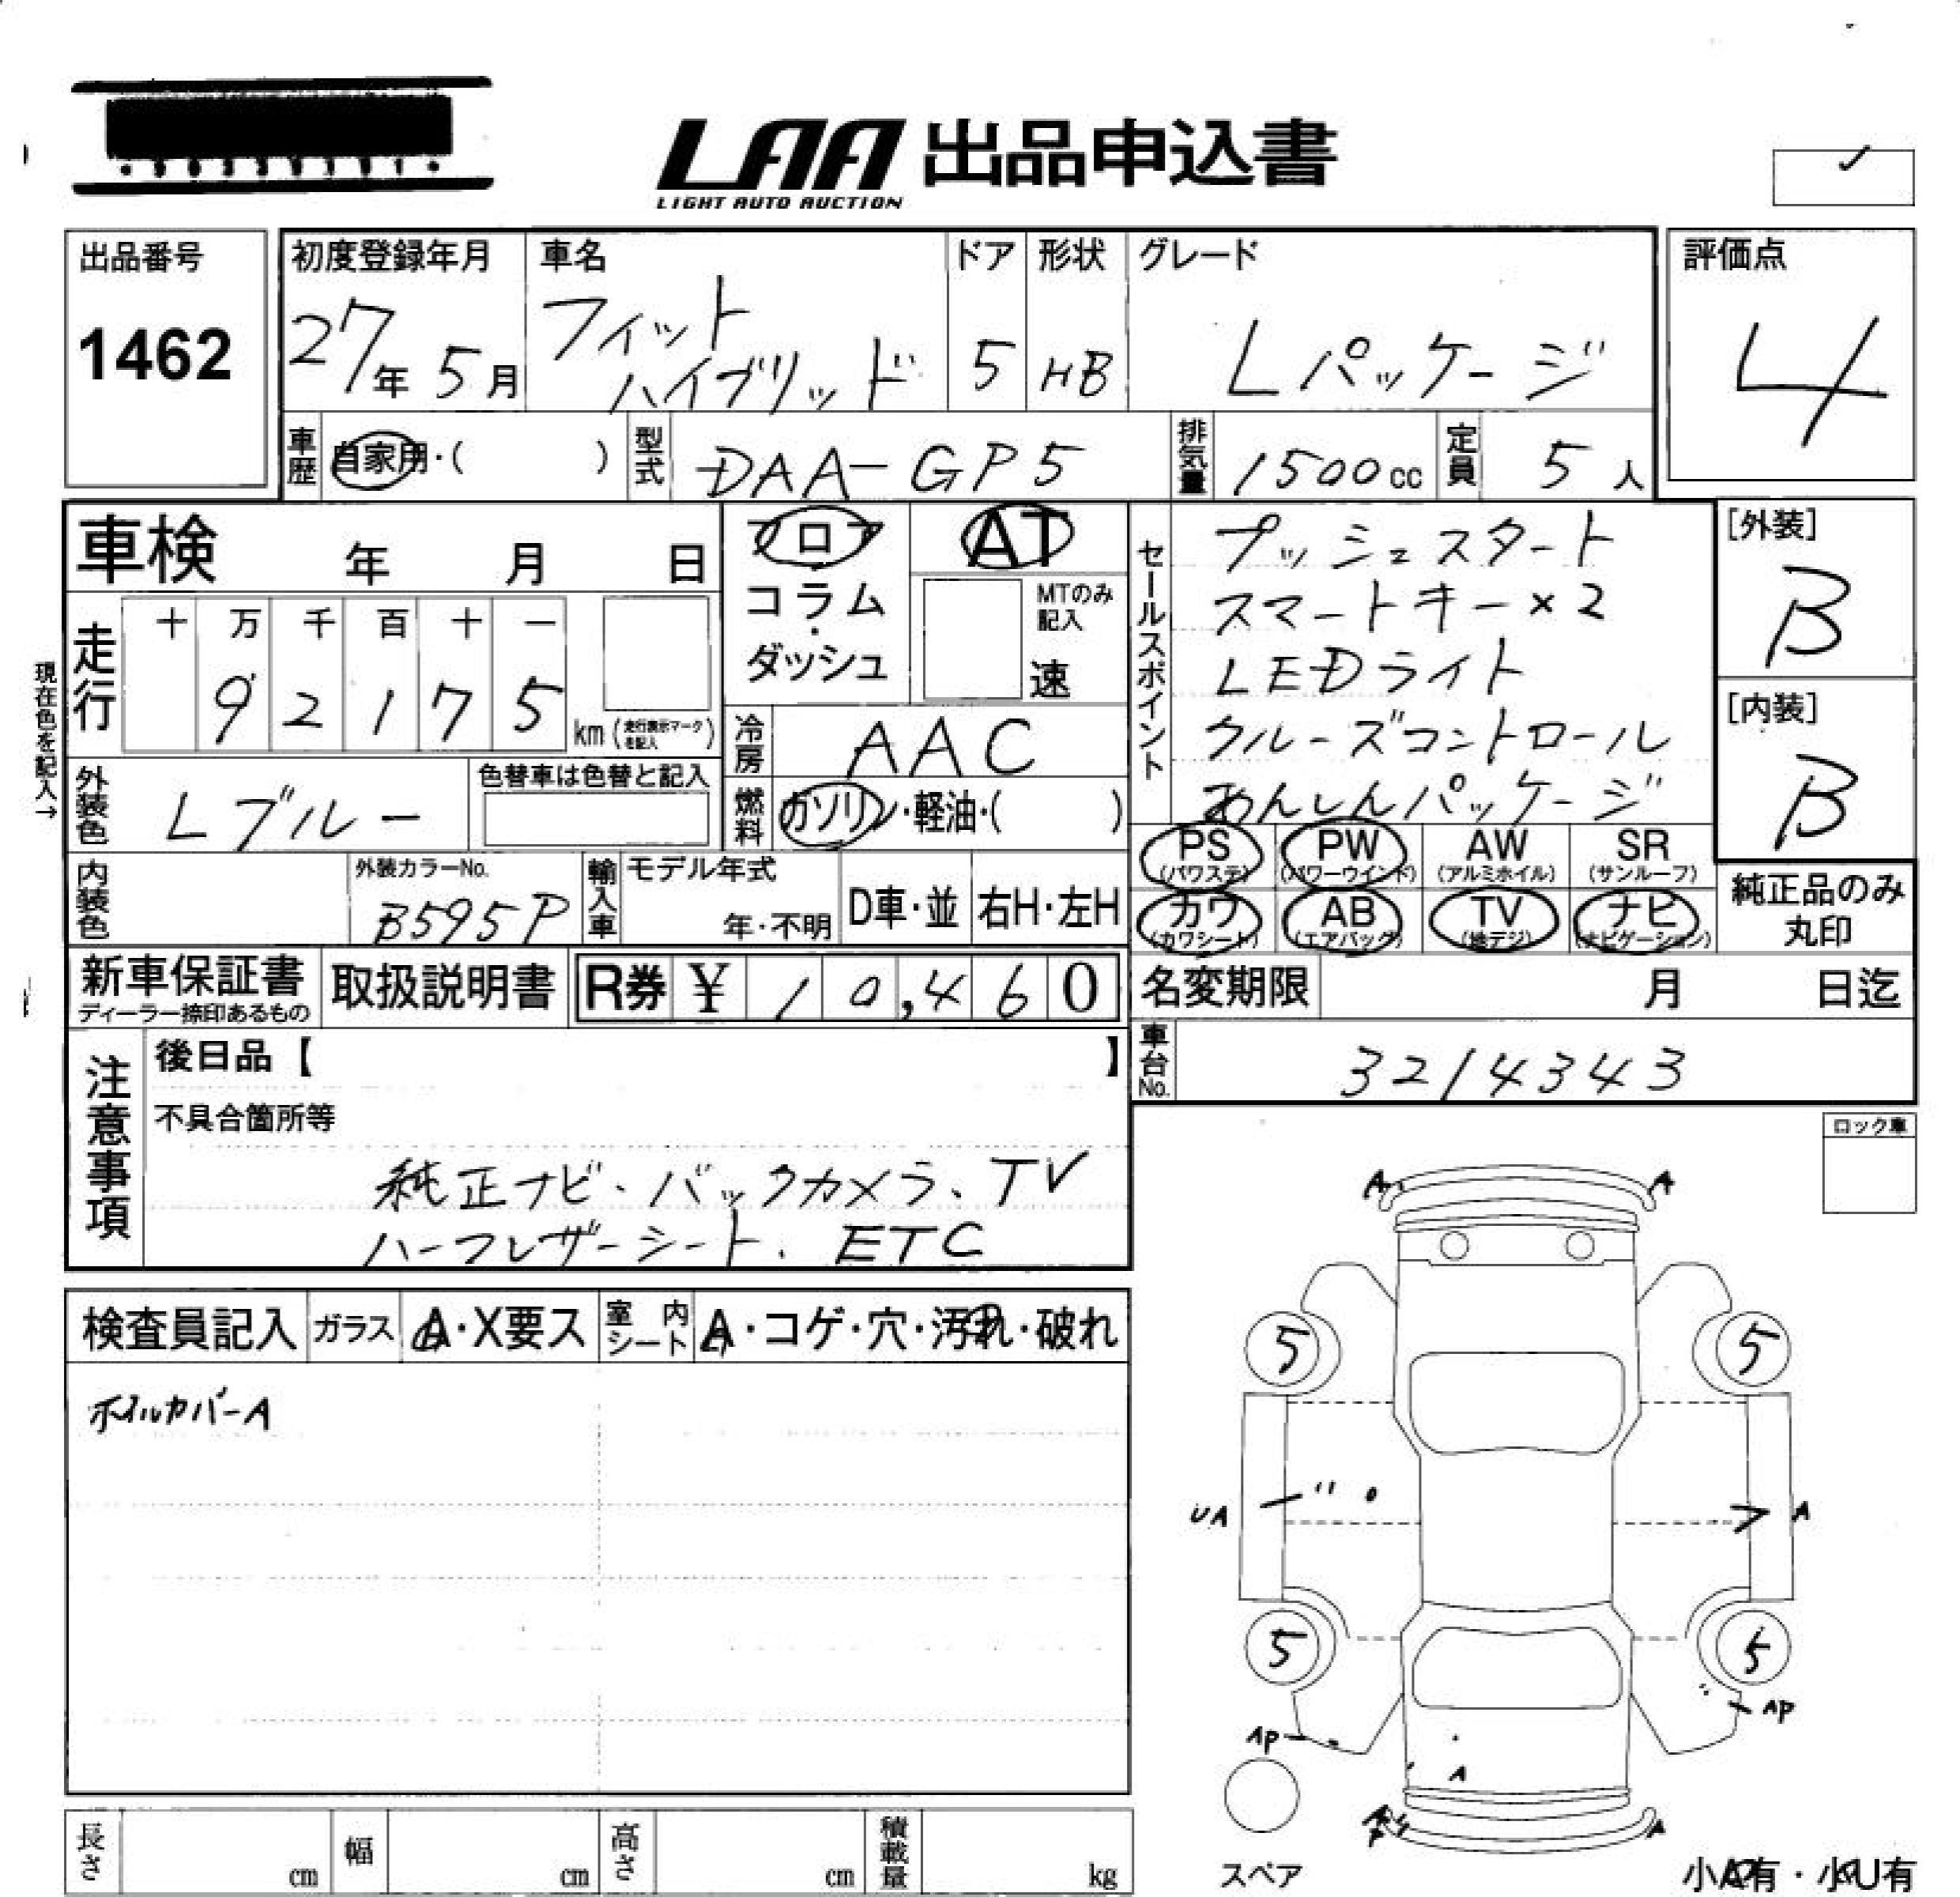 LAA 出品申込書
LIGHT AUTO AUCTION
出品番号
1462
初度登録年月
27年 5月
車名
フィット
ハイブリッド
ドア
5
形状
HB
グレード
Lパッケージ
評価点
4
車歴 自家用・( )
型式 DAA-GP5
排気量 1500cc
定員 5人
車検 年 月 日
フロア
コラム
・
ダッシュ
AT
MTのみ
記入
速
セールスポイント
プッシュスタート
スマートキー×2
LEDライト
クルーズコントロール
あんしんパッケージ
[外装]
B
[内装]
B
現在色を記入→
走行
十 万 千 百 十 一
9 2 1 7 5
km (走行表示マークを記入)
冷房 AAC
外装色 Lブルー
色替車は色替と記入
燃料 ガソリン・軽油・( )
PS (パワステ) PW (パワーウインド) AW (アルミホイル) SR (サンルーフ)
カワ (カワシート) AB (エアバッグ) TV (地デジ) ナビ (ナビゲーション)
純正品のみ
丸印
内装色
外装カラーNo.
B595P
輸入車
モデル年式
年・不明
D車・並
右H・左H
新車保証書
ディーラー捺印あるもの
取扱説明書
R券 ¥ 10,460
名変期限 月 日迄
車台No. 3214343
注意事項
後日品【 】
不具合箇所等
純正ナビ、バックカメラ、TV
ハーフレザーシート、ETC
ロック車
検査員記入
ガラス A・X要ス
室内シート A・コゲ・穴・汚れ・破れ
ホイルカバーA
A A
5 5
UA A
5 5
AP AP
A
A
スペア
小A有・小U有
長さ cm
幅 cm
高さ cm
積載量 kg